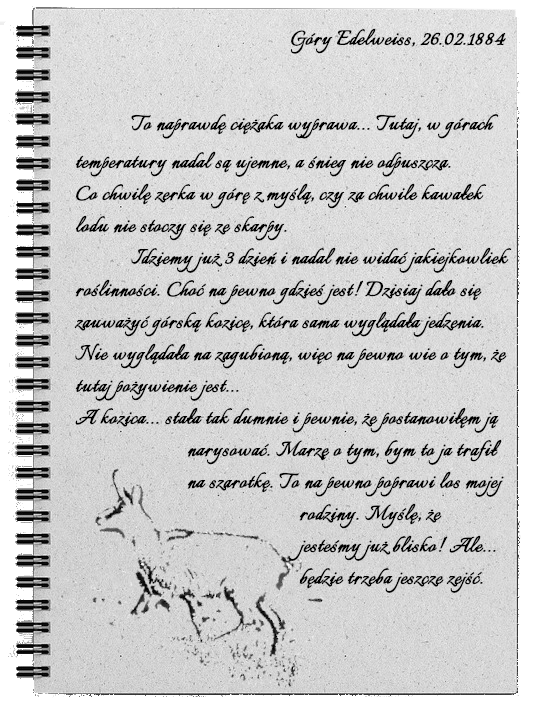 Góry Edelweiss, 26.02.1884
To naprawdę ciężaka wyprawa... Tutaj, w górach
temperatury nadal są ujemne, a śnieg nie odpuszcza.
Co chwilę zerka w górę z myślą, czy za chwile kawałek
lodu nie stoczy się ze skarpy.
Idziemy już 3 dzień i nadal nie widać jakiejkowliek
roślinności. Choć na pewno gdzieś jest! Dzisiaj dało się
zauważyć górską kozicę, która sama wyglądała jedzenia.
Nie wyglądała na zagubioną, więc na pewno wie o tym, że
tutaj pożywienie jest...
A kozica... stała tak dumnie i pewnie, że postanowiłem ją
narysować. Marzę o tym, bym to ja trafił
na szarotkę. To na pewno poprawi los mojej
rodziny. Myślę, że
jesteśmy już blisko! Ale...
będzie trzeba jeszcze zejść.